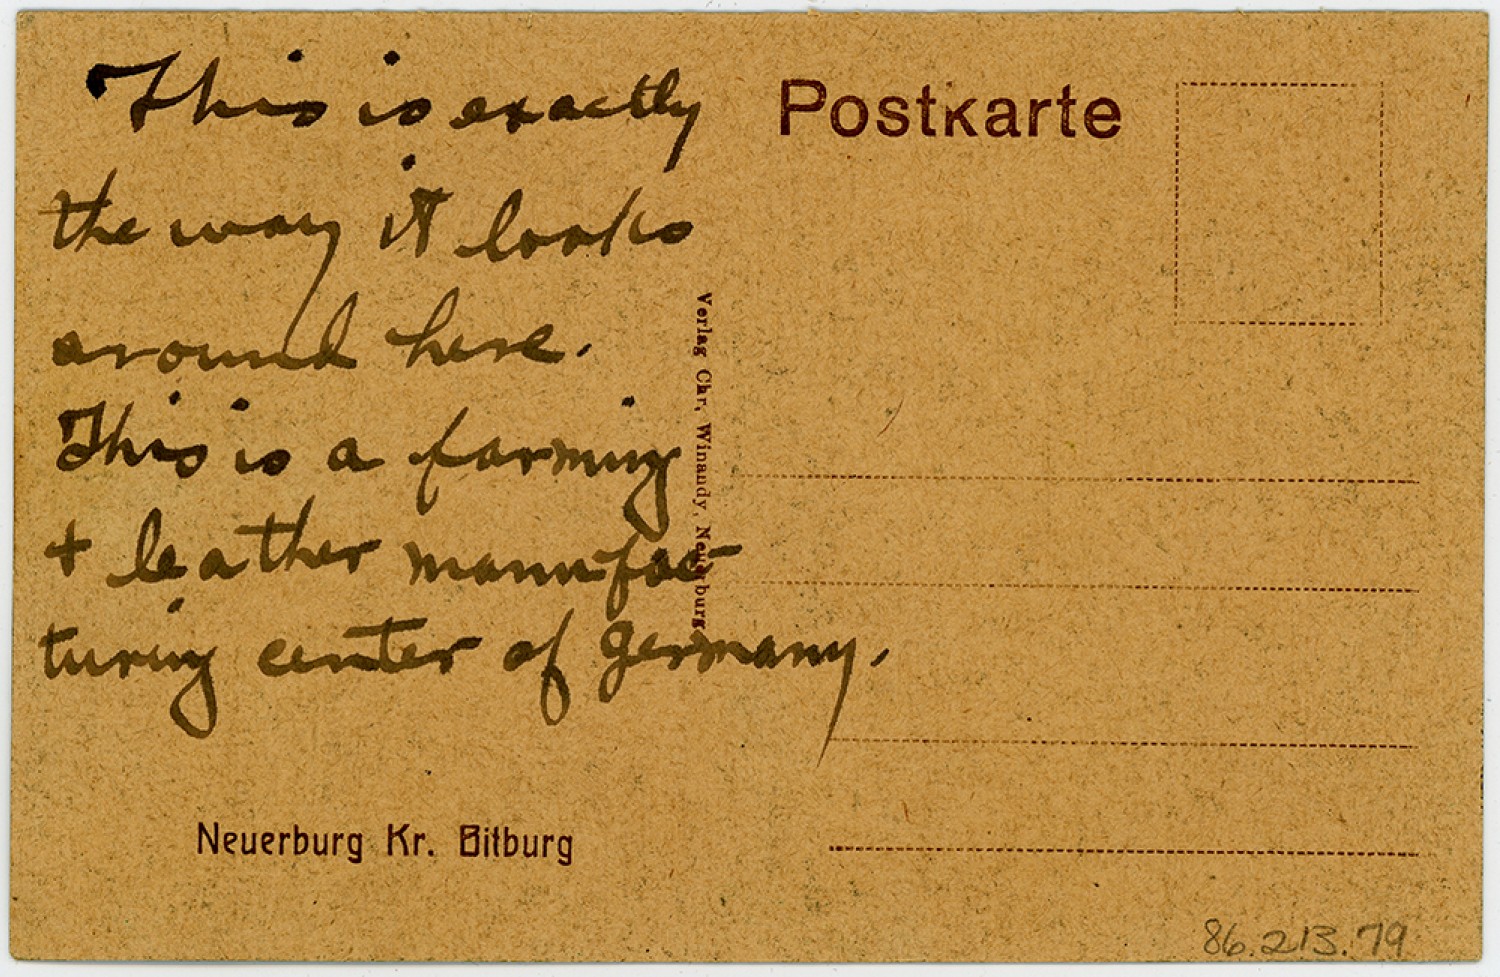 This is exactly
the way it looks
around here.
This is a farming
+ leather manufac-
turing center of Germany.
Neuerburg Kr. Bitburg
Verlag Chr. Winandy, Neuerburg
Postkarte
86.213.79